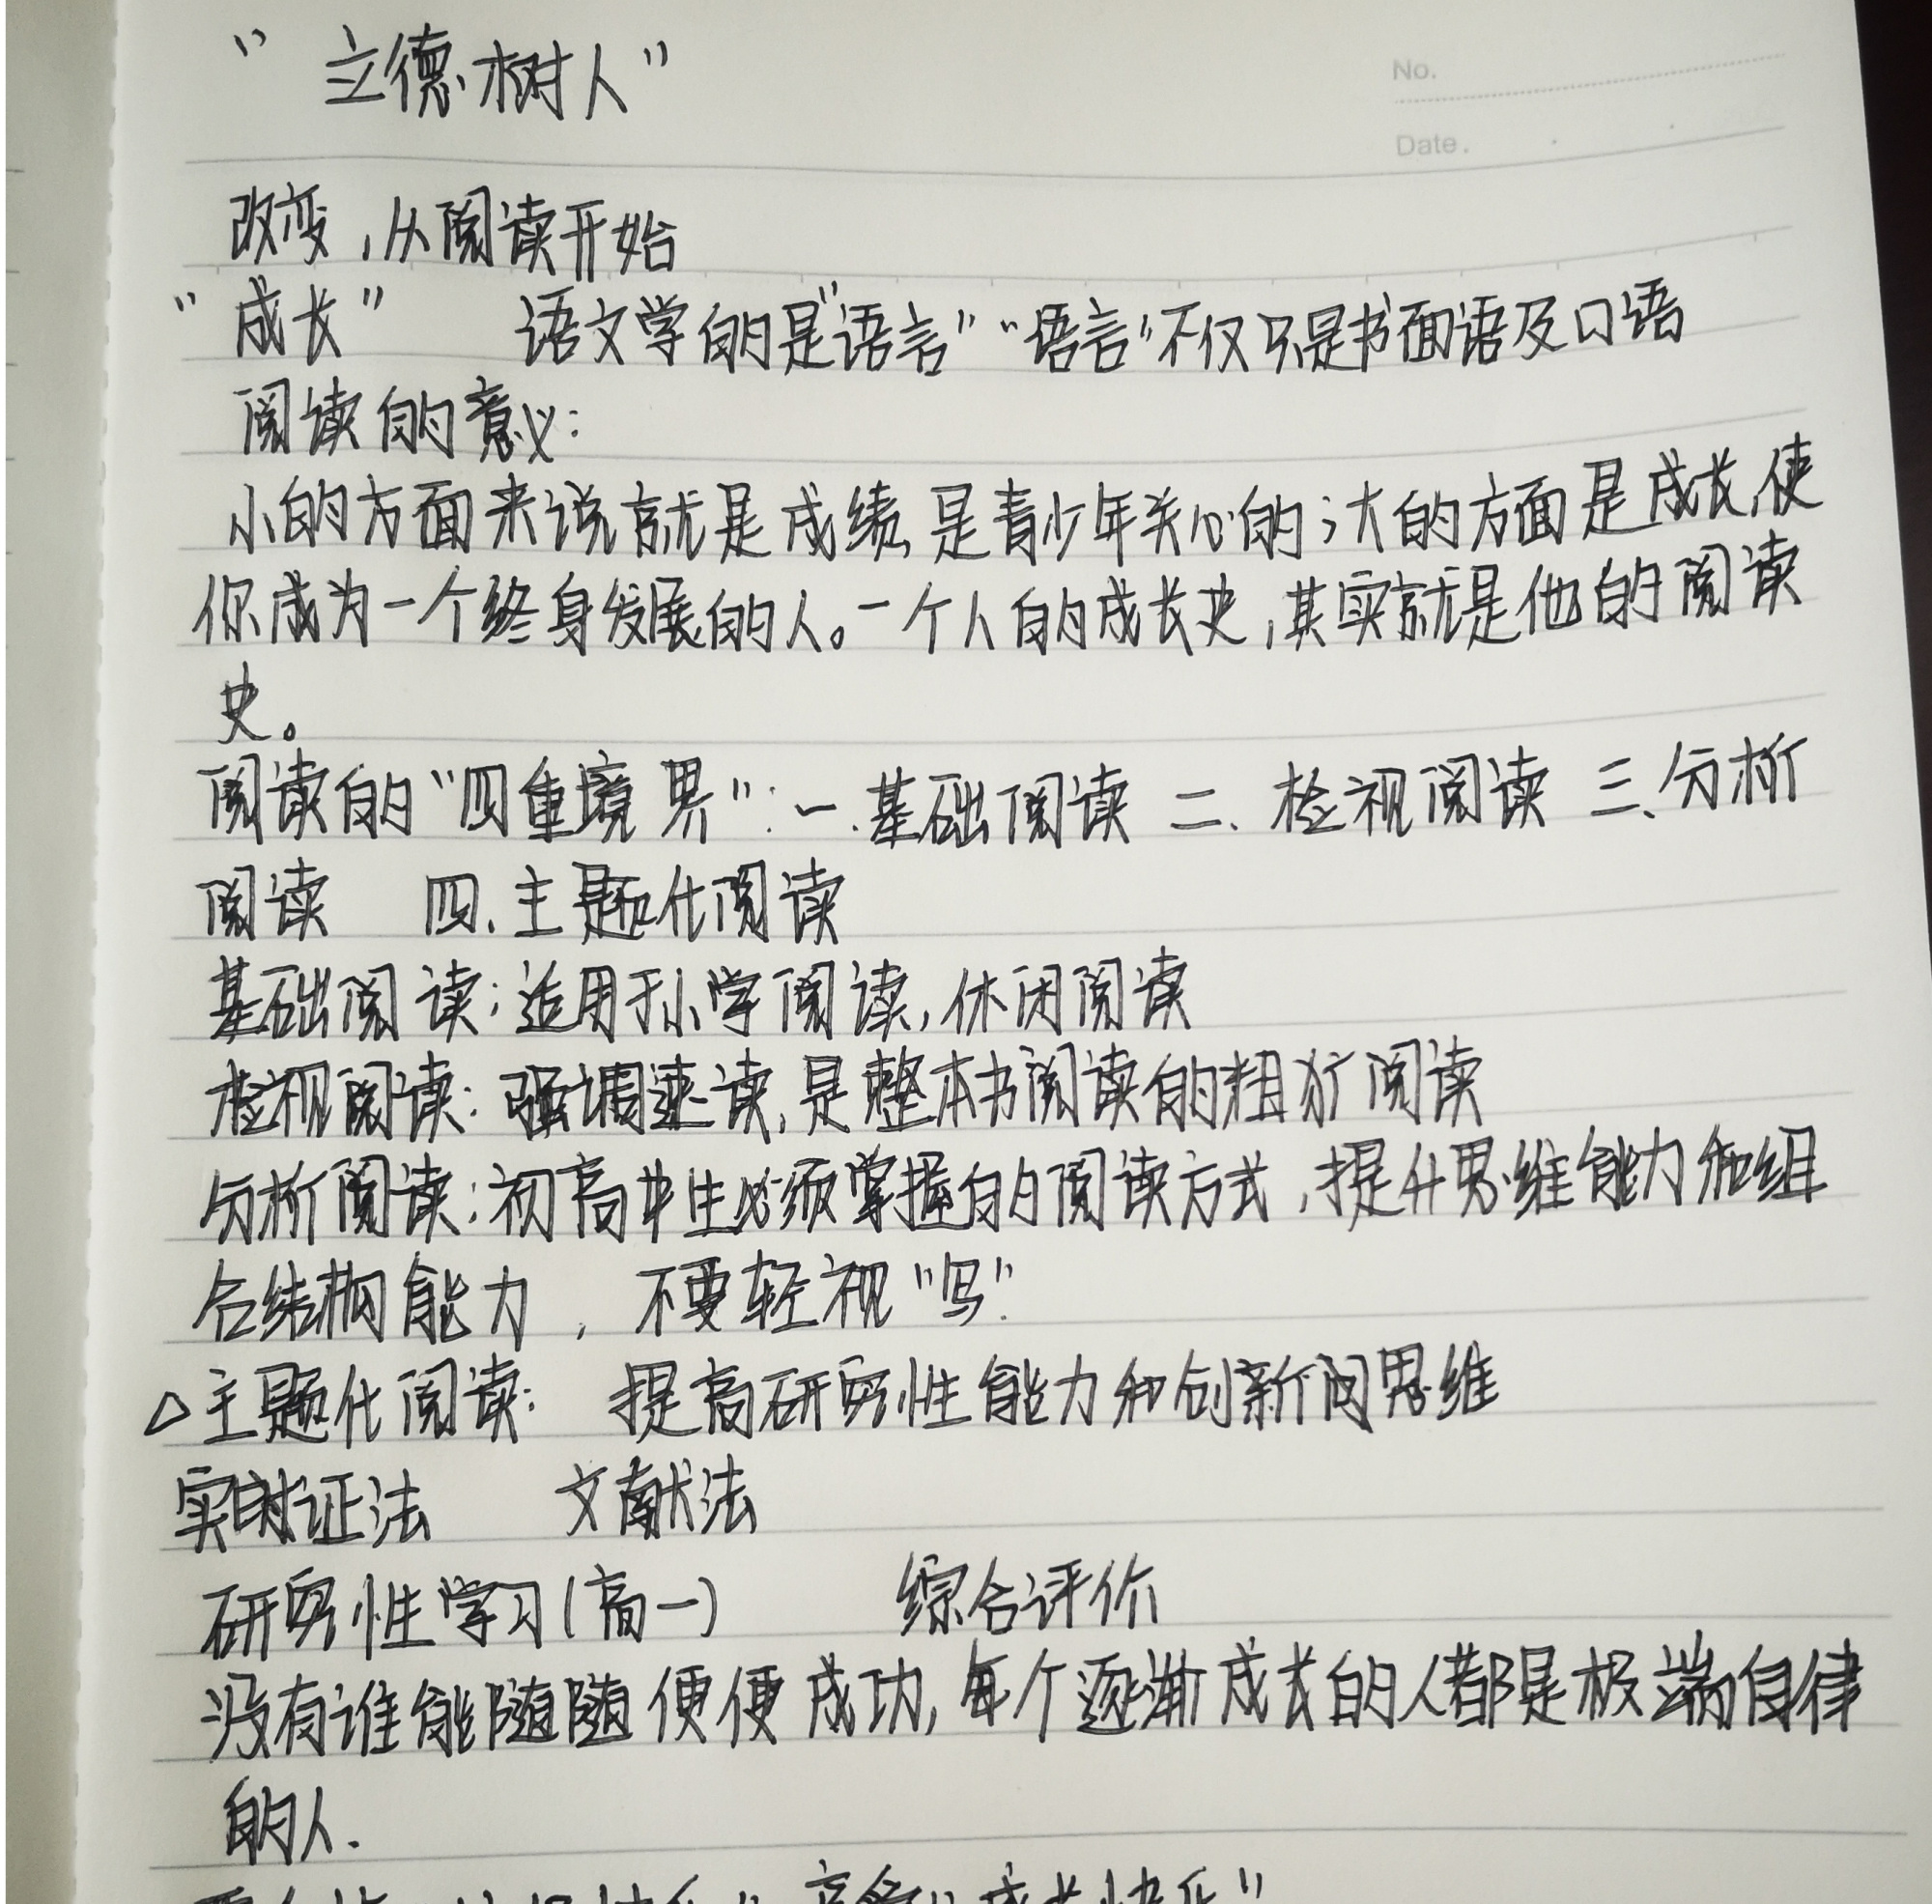 “立德树人”
No.
Date.
改变,从阅读开始
“成长” 语文学的是“语言” “语言”不仅只是书面语及口语
阅读的意义:
小的方面来说就是成绩,是青少年关心的;大的方面是成长,使
你成为一个终身发展的人。一个人的成长史,其实就是他的阅读
史。
阅读的“四重境界”:一.基础阅读 二、检视阅读 三、分析
阅读 四.主题化阅读
基础阅读:适用于小学阅读,休闲阅读
检视阅读:强调速读,是整本书阅读的粗犷阅读
分析阅读:初高中生必须掌握的阅读方式,提升思维能力和组
合结构能力, 不要轻视“写”
△主题化阅读: 提高研究性能力和创新间思维
实 证法 文献法
研究性学习(高一) 综合评价
没有谁能随随便便成功,每个逐渐成长的人都是极端自律
的人.
成长快乐”